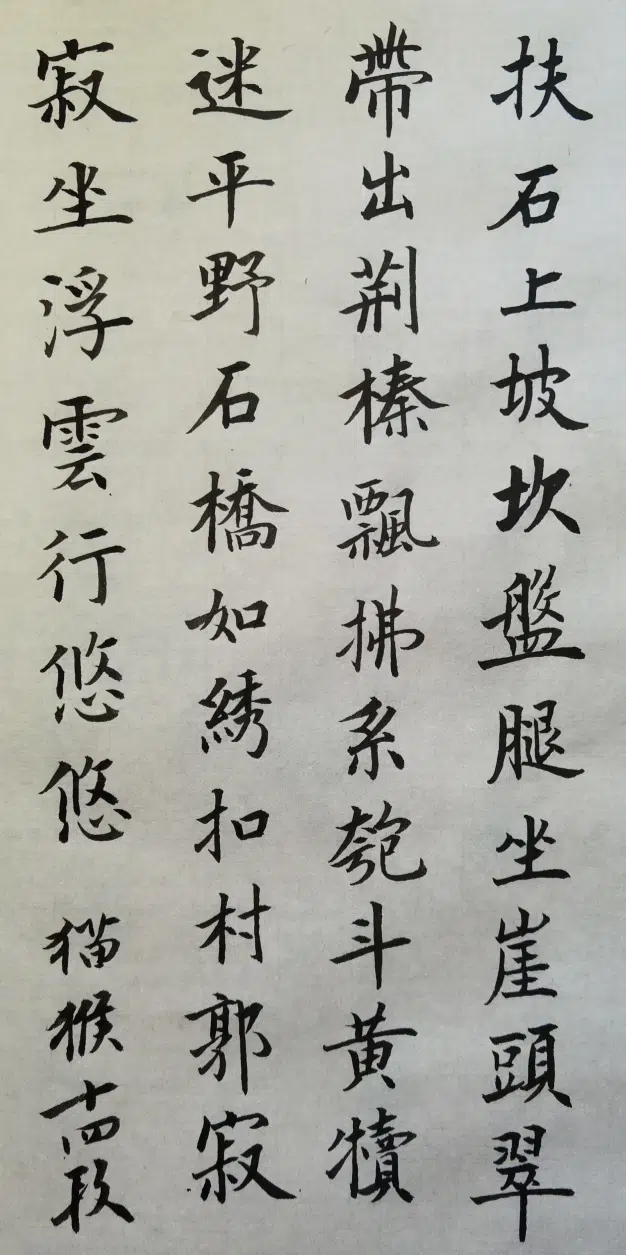 扶石上坡坎盤腿坐崖頭翠
帶出荆榛飄拂系匏斗黄犢
迷平野石橋如綉扣村郭寂
寂坐浮雲行悠悠
猫猴十四段